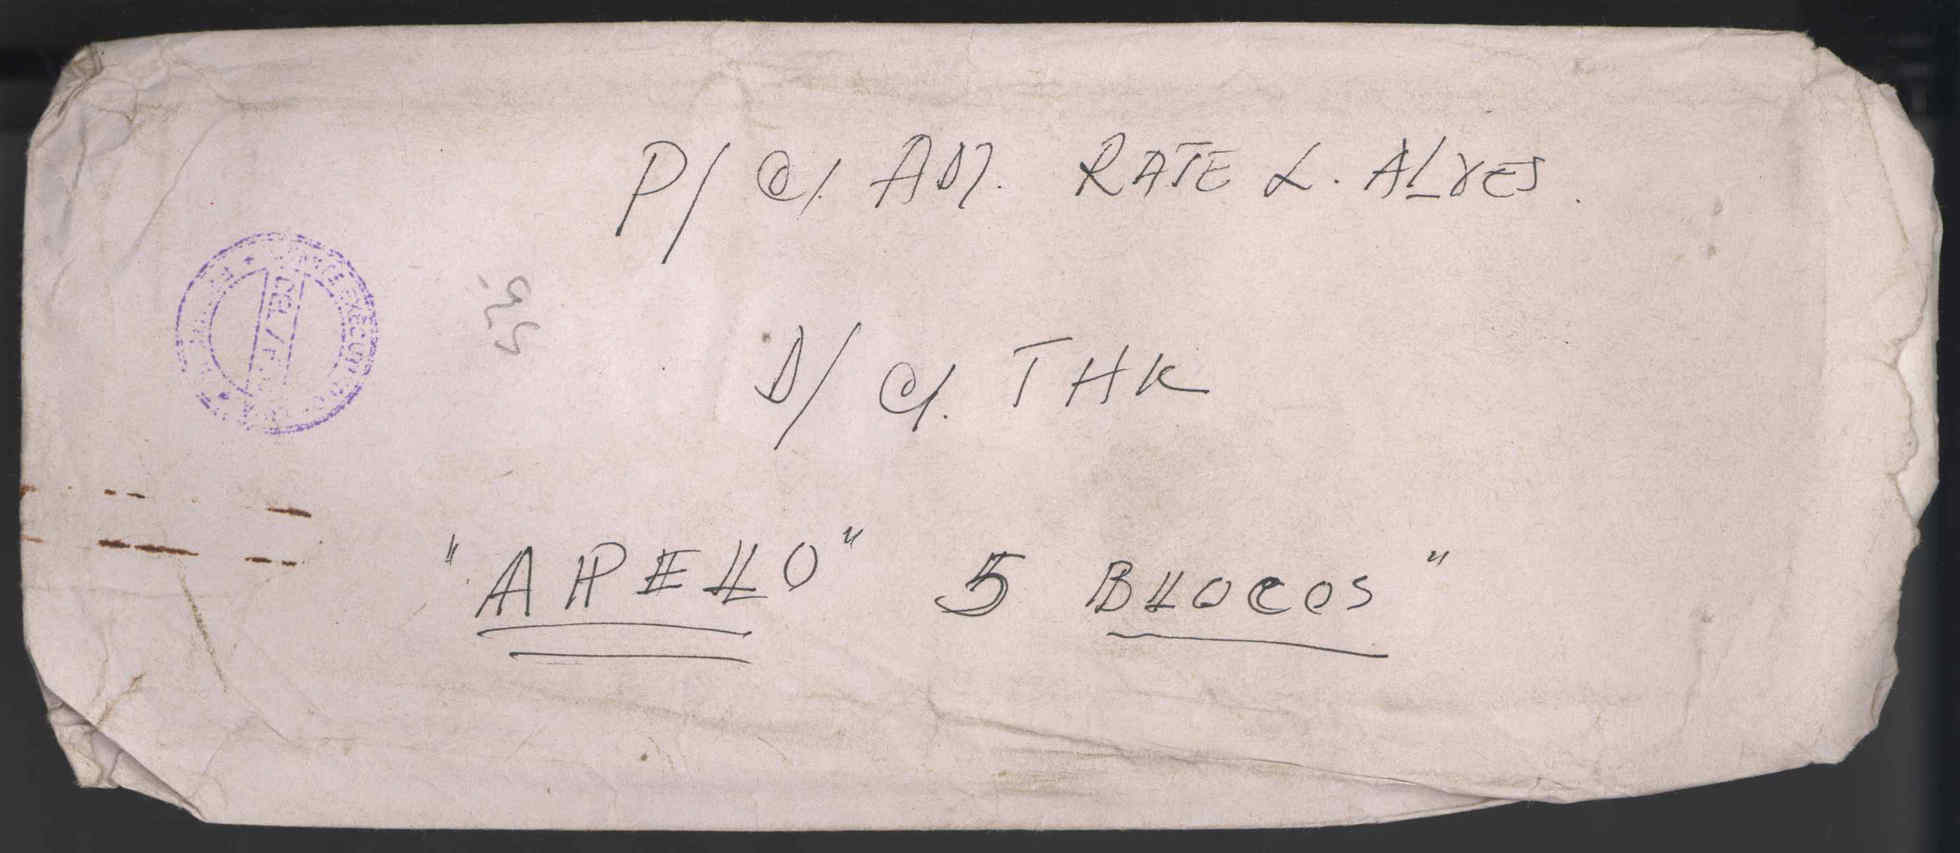 P/ C/. ADJ. RATE L. ALVES.
D/ C/. THK
"APELLO" 5 BLOCOS"